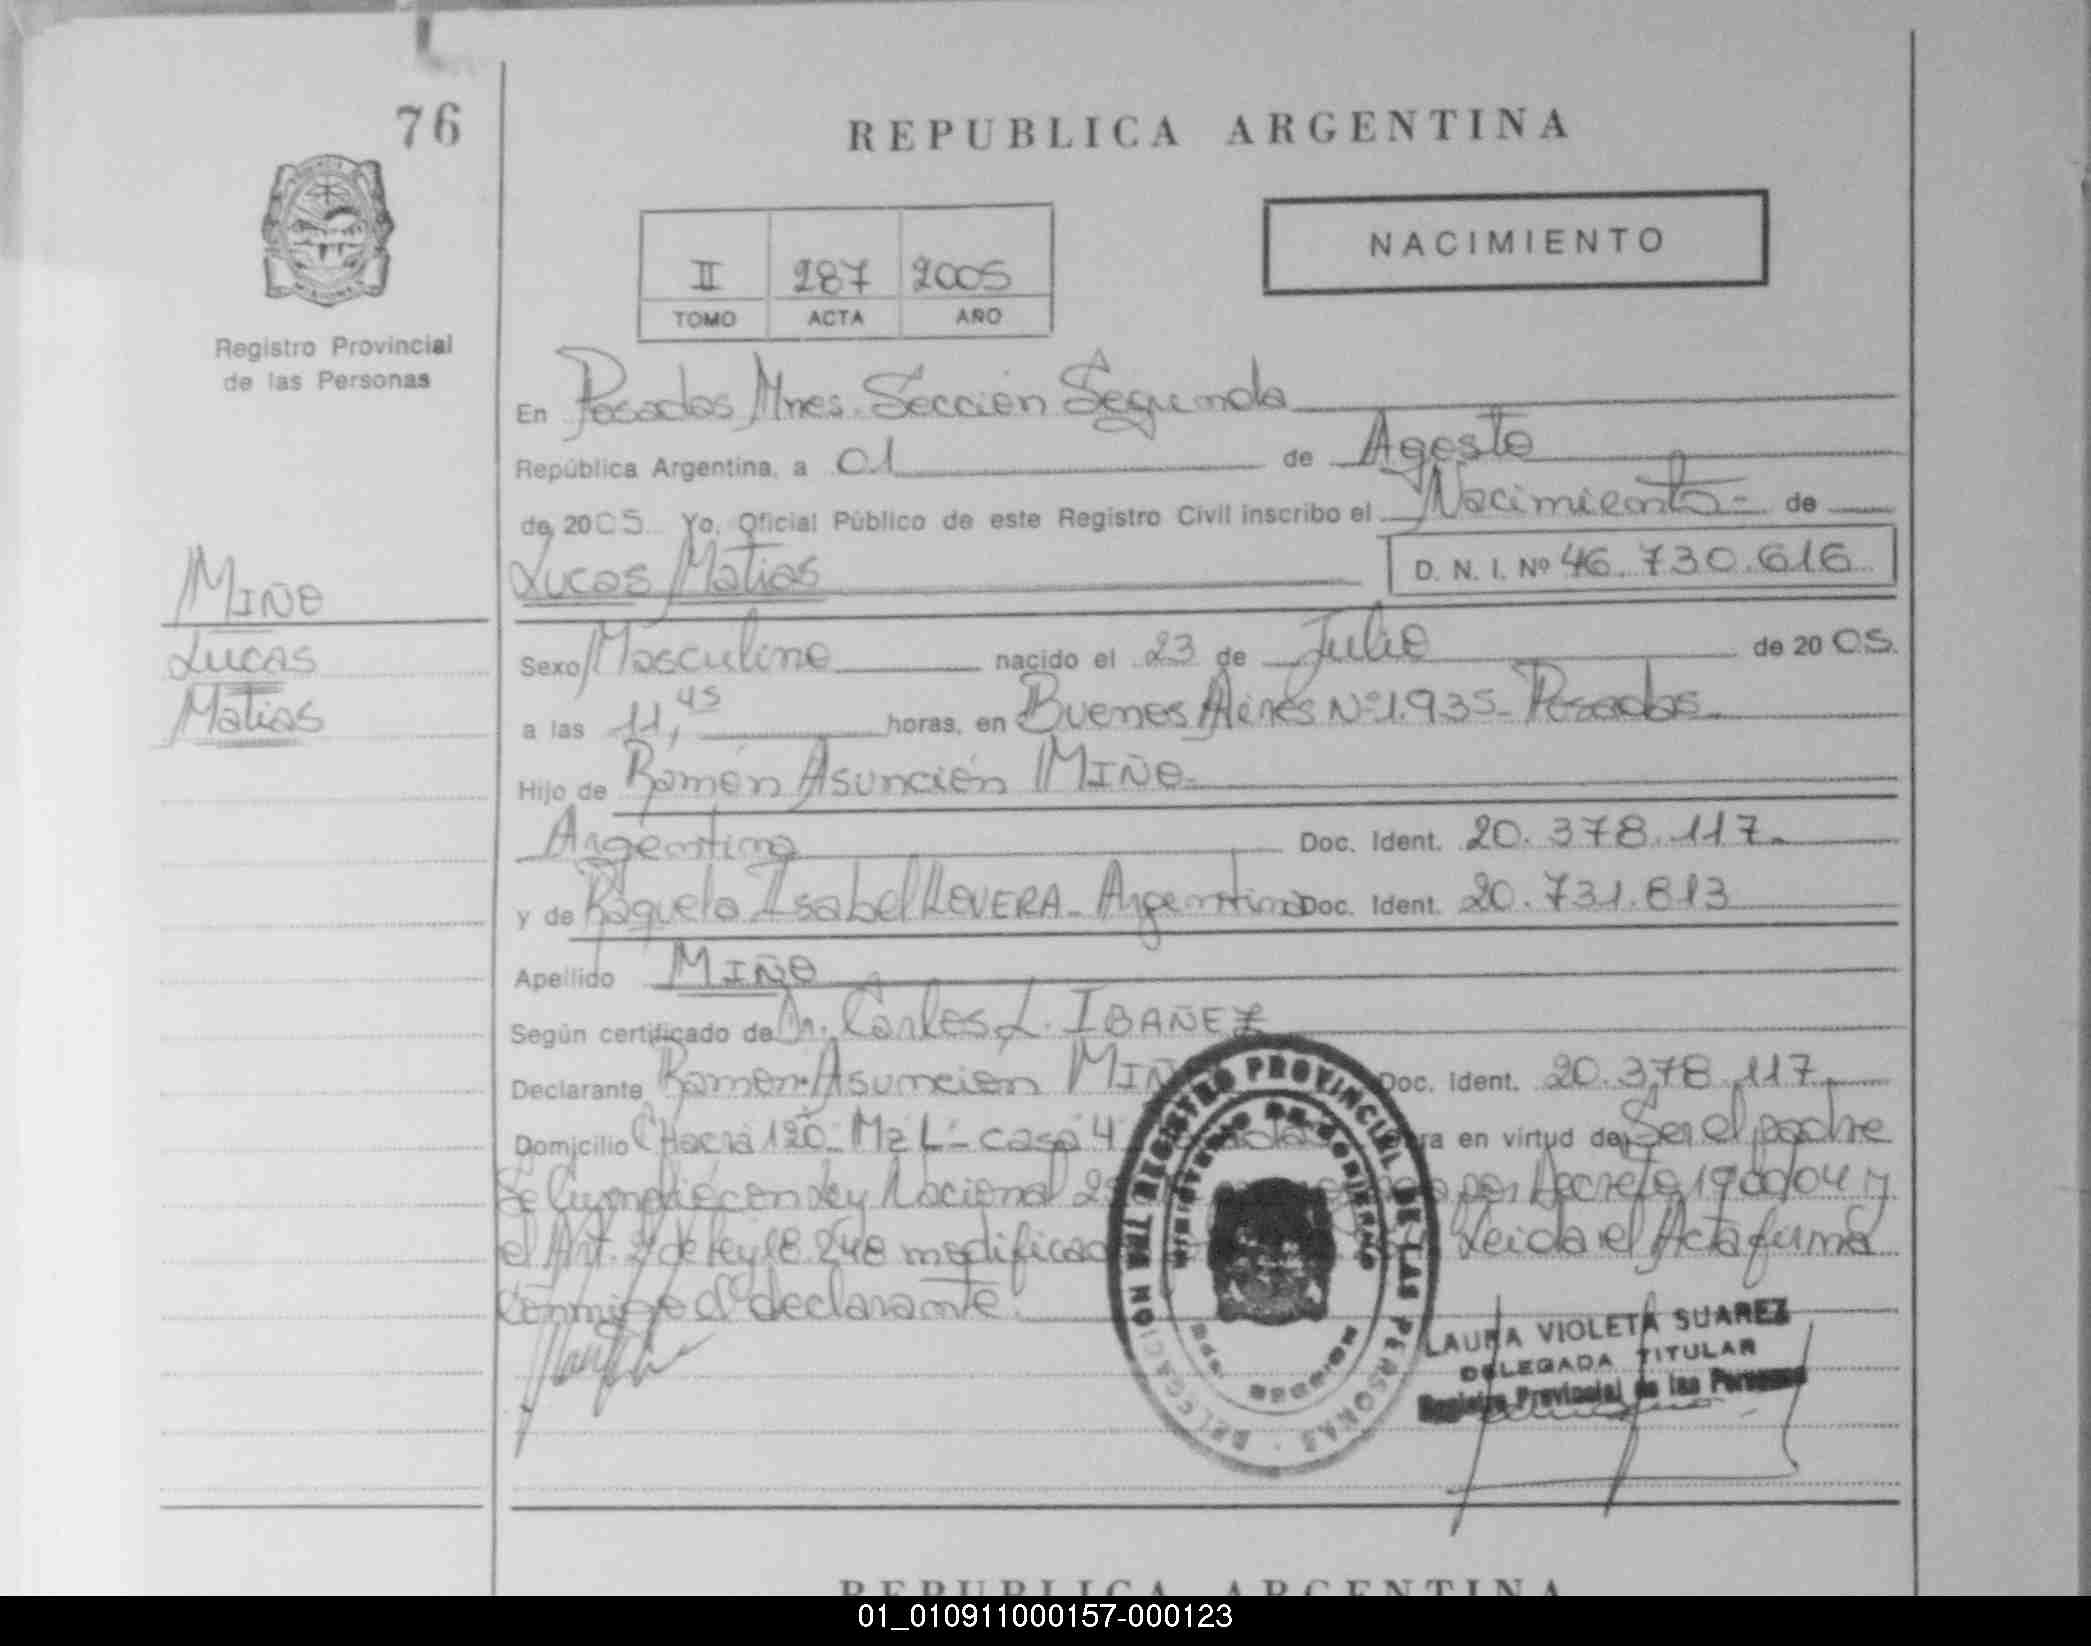 76
REPUBLICA ARGENTINA
NACIMIENTO
II 287 2005
TOMO ACTA AÑO
Registro Provincial
de las Personas
En Posadas Mnes. Sección Segunda
República Argentina, a 01 de Agosto
de 2005 Yo, Oficial Público de este Registro Civil inscribo el Nacimiento = de
Lucas Matias D. N. I. Nº 46.730.616
MIÑO
Lucas
Matias
Sexo Masculino nacido el 23 de Julio de 2005.
a las 11,45 horas, en Buenos Aires Nº 1.935 - Posadas
Hijo de Ramón Asunción MIÑO.
Argentino Doc. Ident. 20.378.117.
y de Raquela Isabel LOVERA - Argentina Doc. Ident. 20.731.813
Apellido MIÑO
Según certificado de Dr. Carlos L. IBAÑEZ
Declarante Ramón Asunción Doc. Ident. 20.378.117
Domicilio Chacra 120 - Mz L - casa 4 en virtud de Ser el padre
Se Cumplió con Ley Nacional por Decreto y
el Art. de Ley 18.248 Leida el Acta firma
conmigo el declarante.
REGISTRO PROVINCIAL DE LAS PERSONAS · DELEGACION
MINISTERIO DE GOBIERNO
LAURA VIOLETA SUAREZ
DELEGADA TITULAR
Registro Provincial de las Personas
REPUBLICA ARGENTINA
01_010911000157-000123